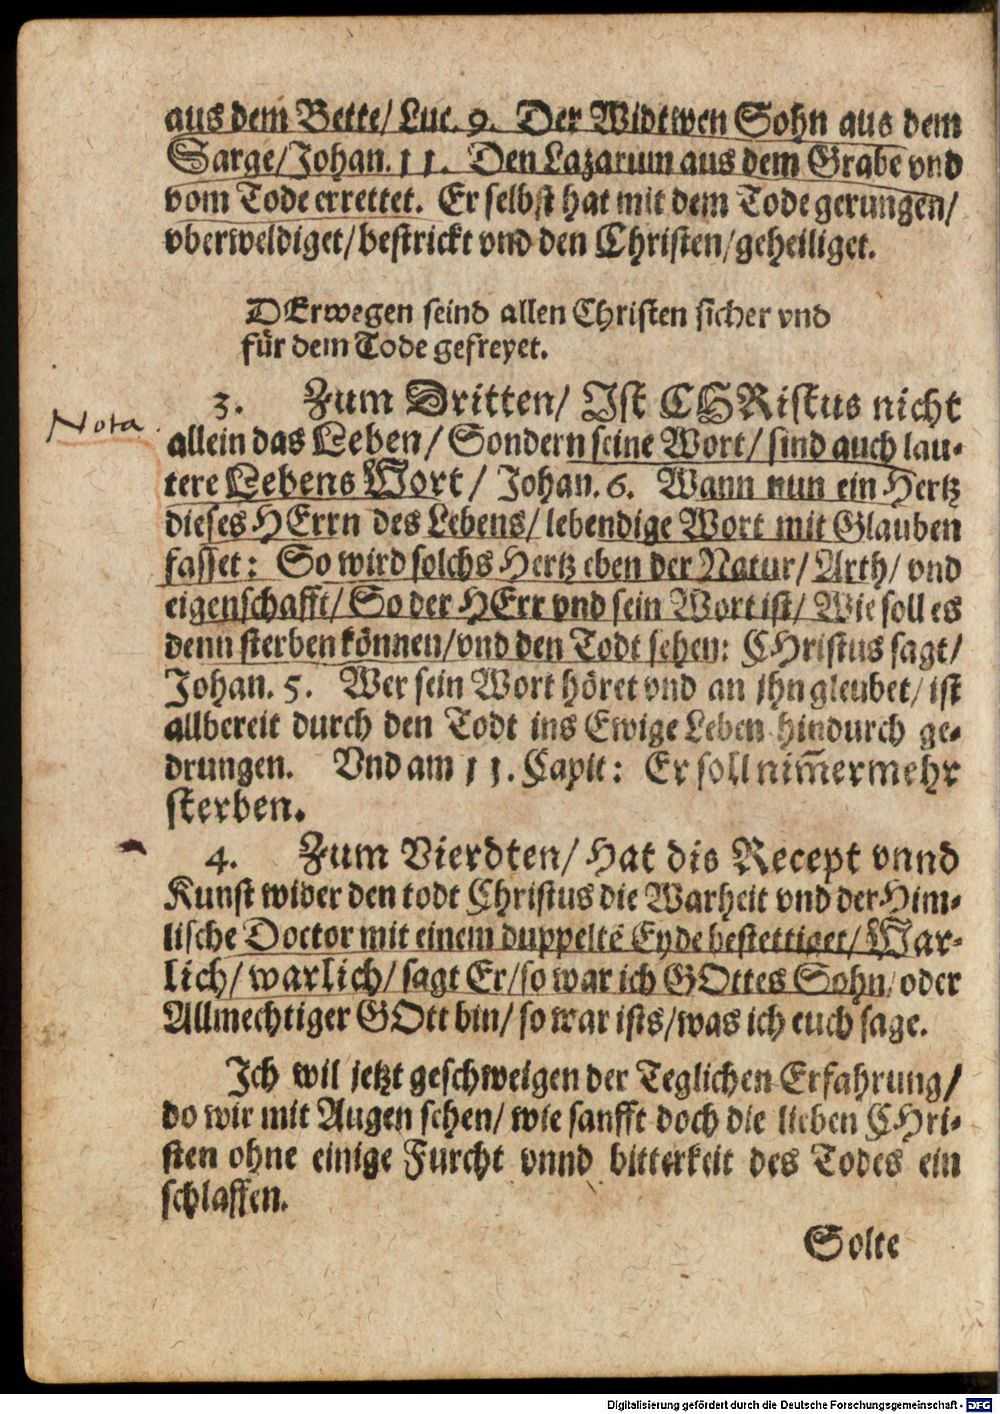 aus dem Bette/ Luc. 9. Der Widtwen Sohn aus dem
Sarge/ Johan. 11. Den Lazarum aus dem Grabe vnd
vom Tode errettet. Er selbst hat mit dem Tode gerungen/
vberweldiget/ bestrickt vnd den Christen/ geheiliget.
DErwegen seind allen Christen sicher vnd
für dem Tode gefreyet.
Nota.
3. Zum Dritten/ Ist CHRistus nicht
allein das Leben/ Sondern seine Wort/ sind auch lau-
tere Lebens Wort/ Johan. 6. Wann nun ein Hertz
dieses HErrn des Lebens/ lebendige Wort mit Glauben
fasset: So wird solchs Hertz eben der Natur/ Arth/ vnd
eigenschafft/ So der HErr vnd sein Wort ist/ Wie soll es
denn sterben können/ vnd den Todt sehen: CHristus sagt/
Johan. 5. Wer sein Wort höret vnd an ihn gleubet/ ist
allbereit durch den Todt ins Ewige Leben hindurch ge-
drungen. Vnd am 11. Capit: Er soll nim̃ermehr
sterben.
4. Zum Vierdten/ Hat dis Recept vnnd
Kunst wider den todt Christus die Warheit vnd der Him-
lische Doctor mit einem duppeltẽ Eyde bestettiget/ War-
lich/ warlich/ sagt Er/ so war ich GOttes Sohn/ oder
Allmechtiger GOtt bin/ so war ists/ was ich euch sage.
Ich wil jetzt geschweigen der Teglichen Erfahrung/
do wir mit Augen sehen/ wie sanfft doch die lieben CHri-
sten ohne einige Furcht vnnd bitterkeit des Todes ein
schlaffen.
Solte
Digitalisierung gefördert durch die Deutsche Forschungsgemeinschaft - DFG